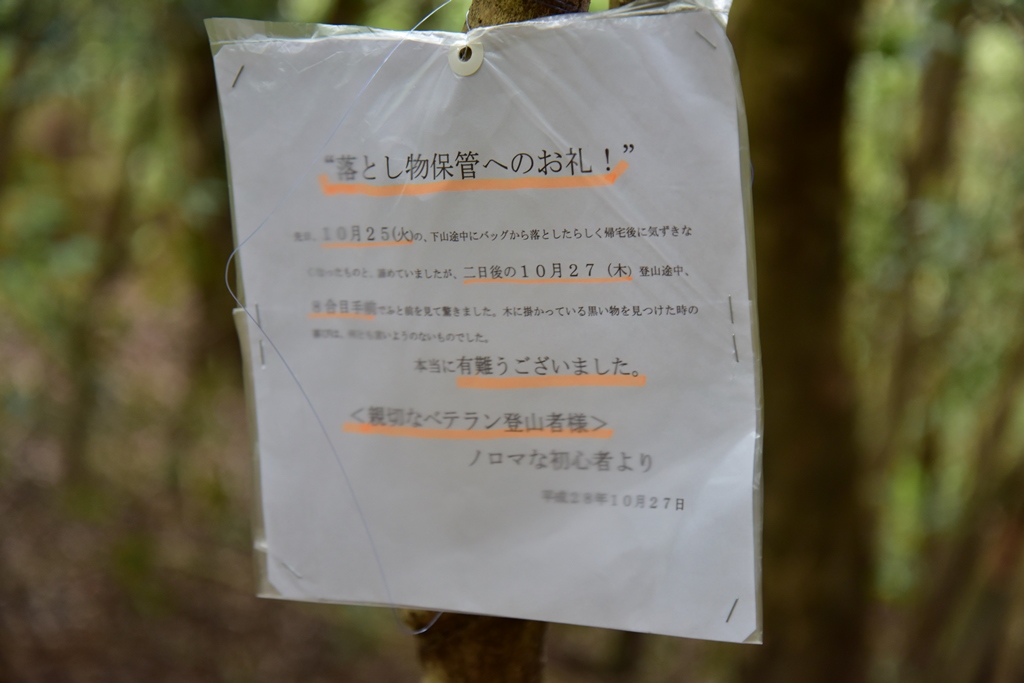 “落とし物保管へのお礼！”
先日、10月25(火)の、下山途中にバッグから落としたらしく帰宅後に気ずきな
くなったものと、諦めていましたが、二日後の10月27（木）登山途中、
8合目手前でふと前を見て驚きました。木に掛かっている黒い物を見つけた時の
喜びは、何とも言いようのないものでした。
本当に有難うございました。
＜親切なベテラン登山者様＞
ノロマな初心者より
平成28年10月27日